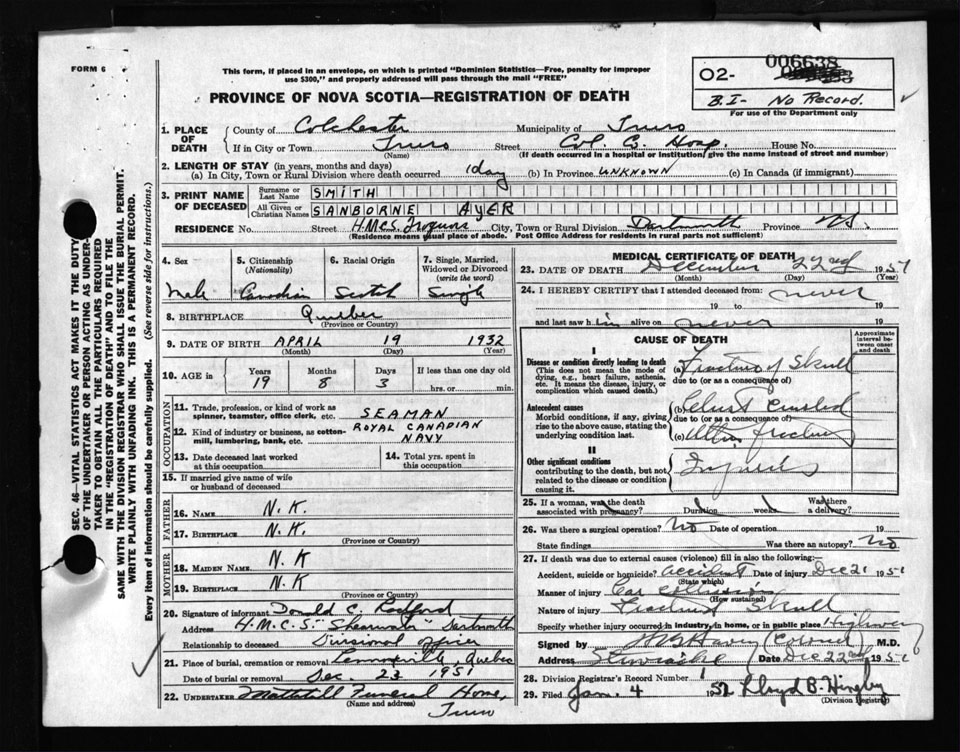 FORM 6
This form, if placed in an envelope, on which is printed "Dominion Statistics—Free, penalty for improper
use $300," and properly addressed will pass through the mail "FREE"
PROVINCE OF NOVA SCOTIA—REGISTRATION OF DEATH
006638
O2-
B.I- No Record.
For use of the Department only
SEC. 46—VITAL STATISTICS ACT MAKES IT THE DUTY
OF THE UNDERTAKER OR PERSON ACTING AS UNDER-
TAKER TO OBTAIN ALL THE PARTICULARS REQUIRED
IN THE "REGISTRATION OF DEATH" AND TO FILE THE
SAME WITH THE DIVISION REGISTRAR WHO SHALL ISSUE THE BURIAL PERMIT.
WRITE PLAINLY WITH UNFADING INK. THIS IS A PERMANENT RECORD.
Every item of information should be carefully supplied. (See reverse side for instructions.)
1. PLACE OF DEATH County of Colchester Municipality of Truro
If in City or Town Truro Street Col. C. Hosp. House No.
(Name) (If death occurred in a hospital or institution, give the name instead of street and number)
2. LENGTH OF STAY (in years, months and days)
(a) In City, Town or Rural Division where death occurred 1 day (b) In Province UNKNOWN (c) In Canada (if immigrant)
3. PRINT NAME OF DECEASED Surname or Last Name SMITH
All Given or Christian Names SANBORNE AYER
RESIDENCE No. Street H.M.C.S. City, Town or Rural Division Dartmouth Province N.S.
(Residence means usual place of abode. Post Office Address for residents in rural parts not sufficient)
4. Sex Male
5. Citizenship (Nationality) Canadian
6. Racial Origin Scotch
7. Single, Married, Widowed or Divorced (write the word) Single
8. BIRTHPLACE Quebec
(Province or Country)
9. DATE OF BIRTH APRIL 19 1932
(Month) (Day) (Year)
10. AGE in Years 19 Months 8 Days 3 If less than one day old hrs. or min.
OCCUPATION
11. Trade, profession, or kind of work as spinner, teamster, office clerk, etc. SEAMAN
12. Kind of industry or business, as cotton-mill, lumbering, bank, etc. ROYAL CANADIAN NAVY
13. Date deceased last worked at this occupation
14. Total yrs. spent in this occupation
15. If married give name of wife or husband of deceased
FATHER
16. NAME N.K.
17. BIRTHPLACE N.K.
(Province or Country)
MOTHER
18. MAIDEN NAME N.K
19. BIRTHPLACE N.K
(Province or Country)
20. Signature of informant Donald C. Radford
Address H.M.C.S. "Shearwater" Dartmouth
Relationship to deceased Divisional Officer
21. Place of burial, cremation or removal Lennoxville, Quebec
Date of burial or removal Dec. 23 1951
22. UNDERTAKER Mattatall Funeral Home,
(Name and address)
Truro
MEDICAL CERTIFICATE OF DEATH
23. DATE OF DEATH December 22nd 1951
(Month) (Day) (Year)
24. I HEREBY CERTIFY that I attended deceased from: never
19 to 19
and last saw him alive on never 19
CAUSE OF DEATH
Approximate interval between onset and death
I
Disease or condition directly leading to death
(This does not mean the mode of dying, e.g., heart failure, asthenia, etc. It means the disease, injury, or complication which caused death.)
(a) Fracture of Skull
due to (or as a consequence of)
Antecedent causes
Morbid conditions, if any, giving rise to the above cause, stating the underlying condition last.
(b) Chest Crushed
due to (or as a consequence of)
(c) Other fractures
II
Other significant conditions
contributing to the death, but not related to the disease or condition causing it.
Injuries
25. If a woman, was the death associated with pregnancy? Duration weeks Was there a delivery?
26. Was there a surgical operation? No Date of operation 19
State findings Was there an autopsy? No
27. If death was due to external causes (violence) fill in also the following:—
Accident, suicide or homicide? Accident Date of injury Dec 21 1951
(State which)
Manner of injury Car collision
(How sustained)
Nature of injury Fractured Skull
Specify whether injury occurred in industry, in home, or in public place Highway
Signed by (Coroner) M.D.
Address Stewiacke Date Dec 22nd 1951
28. Division Registrar's Record Number 1
29. Filed Jan. 4 1952 Lloyd B.
(Division Registrar)